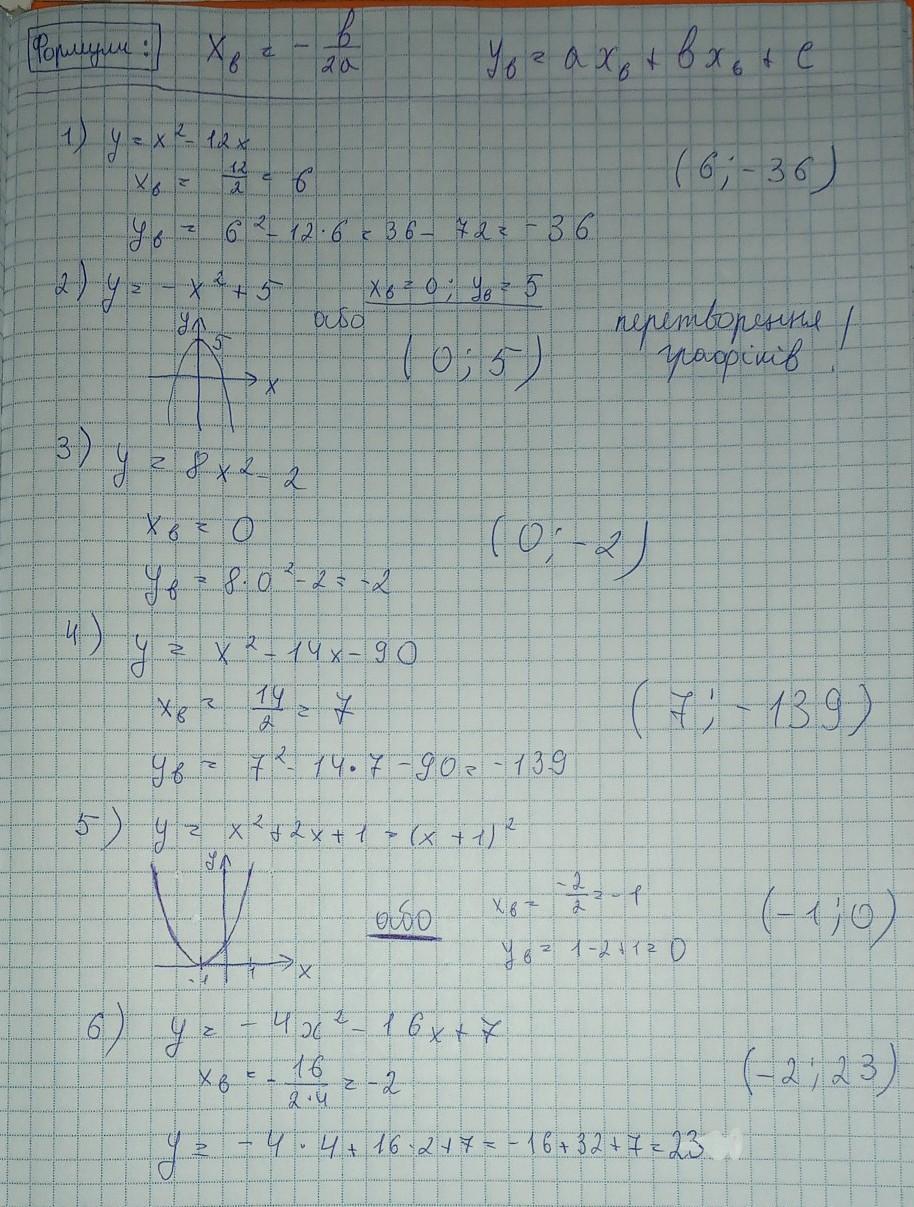 Формули: xв = - в/2a yв = axв + вxв + c
1) y = x² - 12x
xв = 12/2 = 6 (6; -36)
yв = 6² - 12·6 = 36 - 72 = -36
2) y = -x² + 5 xв = 0; yв = 5
y 5 x або (0; 5) перетворення графіків!
3) y = 8x² - 2
xв = 0 (0; -2)
yв = 8·0² - 2 = -2
4) y = x² - 14x - 90
xв = 14/2 = 7 (7; -139)
yв = 7² - 14·7 - 90 = -139
5) y = x² + 2x + 1 = (x + 1)²
y -1 1 x або xв = -2/2 = -1 (-1; 0)
yв = 1 - 2 + 1 = 0
6) y = -4x² - 16x + 7
xв = - 16/2·4 = -2 (-2; 23)
y = -4·4 + 16·2 + 7 = -16 + 32 + 7 = 23